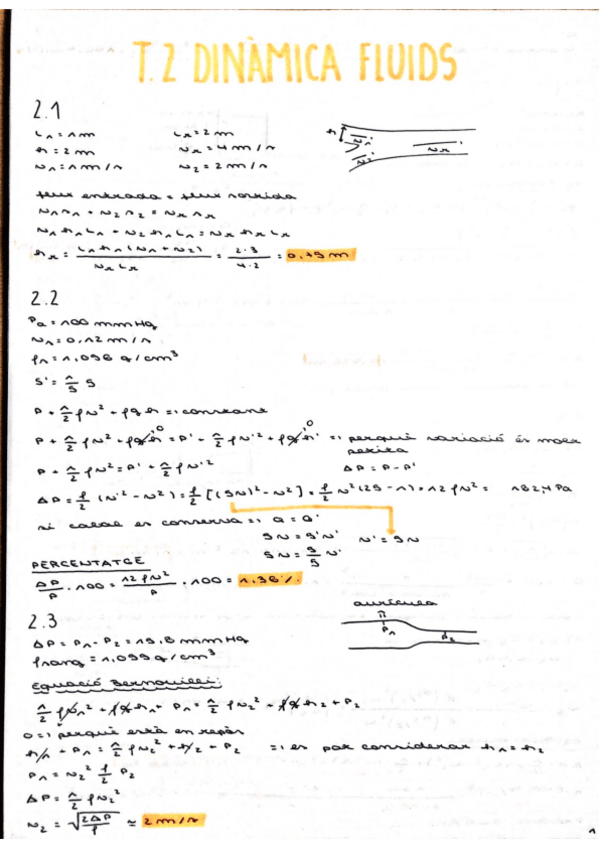 T.2 DINÀMICA FLUIDS
2.1
L₁ = 1 m    Lx = 2 m
h = 2 m    vx = 4 m/s
v₁ = 1 m/s    v₂ = 2 m/s
h v₁ v₂ vx
flux entrada = flux sortida
v₁s₁ + v₂s₂ = vx sx
v₁h₁L₁ + v₂h₁L₁ = vx hx Lx
hx = L₁h₁(v₁ + v₂) / vx Lx = 2·3 / 4·2 = 0,75 m
2.2
Pa = 100 mmHg
v₁ = 0,12 m/s
ρ₁ = 1,056 g/cm³
S' = 1/5 S
P + 1/2 ρv² + ρgh => constant
P + 1/2 ρv² + ρgh = P' + 1/2 ρv'² + ρgh' => perquè variació és molt petita
P + 1/2 ρv² = P' + 1/2 ρv'²    ΔP = P - P'
ΔP = ρ/2 (v'² - v²) = ρ/2 [(5v)² - v²] = ρ/2 v² (25 - 1) = 12 ρv² = 182,4 Pa
si cabal es conserva => Q = Q'
Sv = S'v'    v' = 5v
Sv = S/5 v'
PERCENTATGE
ΔP/P · 100 = 12ρv²/P · 100 = 1,36%
2.3
ΔP = P₁ - P₂ = 15,8 mmHg
ρsang = 1,055 g/cm³
aurícula
P₁ P₂
Equació Bernouilli:
1/2 ρv₁² + ρgh₁ + P₁ = 1/2 ρv₂² + ρgh₂ + P₂
0 => perquè està en repòs
h₁ + P₁ = 1/2 ρv₂² + h₂ + P₂    => es pot considerar h₁ = h₂
P₁ = v₂² ρ/2 P₂
ΔP = 1/2 ρv₂²
v₂ = √(2ΔP/ρ) ≈ 2 m/s
1